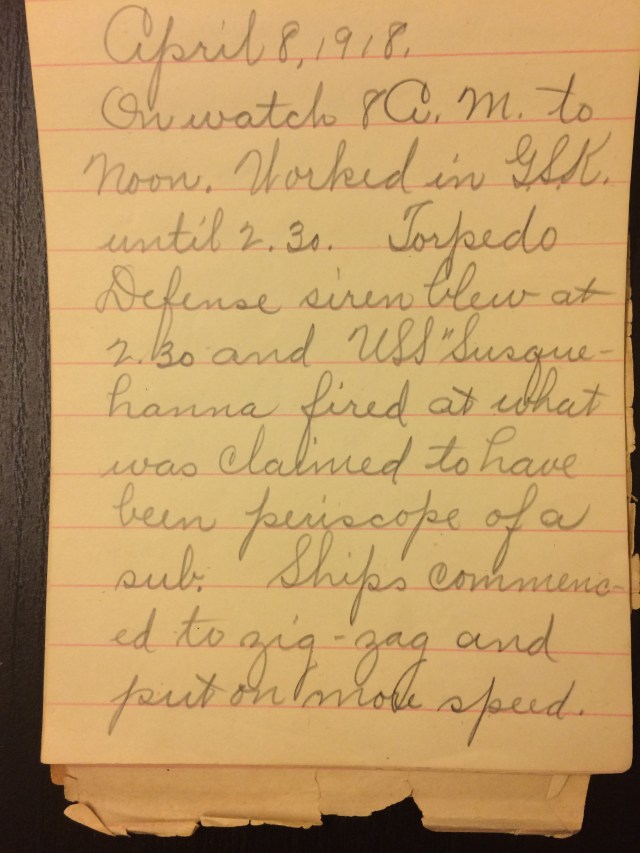 April 8, 1918.
On watch 8 A. M. to
Noon. Worked in G.S.K.
until 2.30. Torpedo
Defense siren blew at
2.30 and USS "Susque-
hanna fired at what
was claimed to have
been periscope of a
sub. Ships commenc-
ed to zig-zag and
put on more speed.